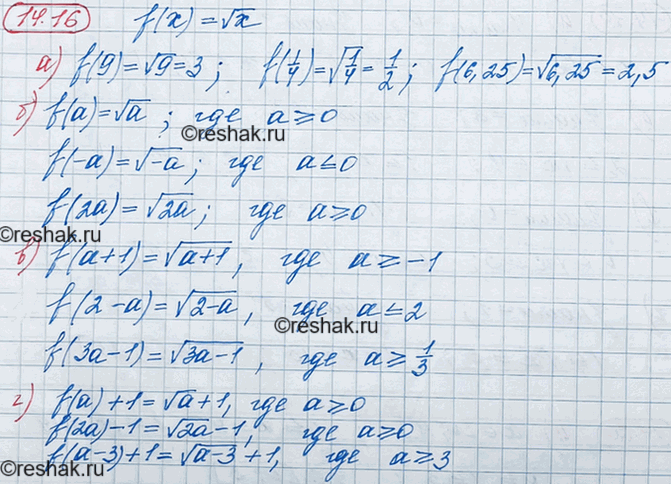 14.16 f(x)=√x
а) f(9)=√9=3; f(1/4)=√1/4=1/2; f(6,25)=√6,25=2,5
©reshak.ru
б) f(a)=√a; где a≥0
©reshak.ru
f(-a)=√-a; где a≤0
f(2a)=√2a; где a≥0
©reshak.ru
в) f(a+1)=√a+1, где a≥-1
f(2-a)=√2-a, где a≤2
©reshak.ru
f(3a-1)=√3a-1, где a≥1/3
г) f(a)+1=√a+1, где a≥0
f(2a)-1=√2a-1, где a≥0
f(a-3)+1=√a-3+1, где a≥3
©reshak.ru
©reshak.ru